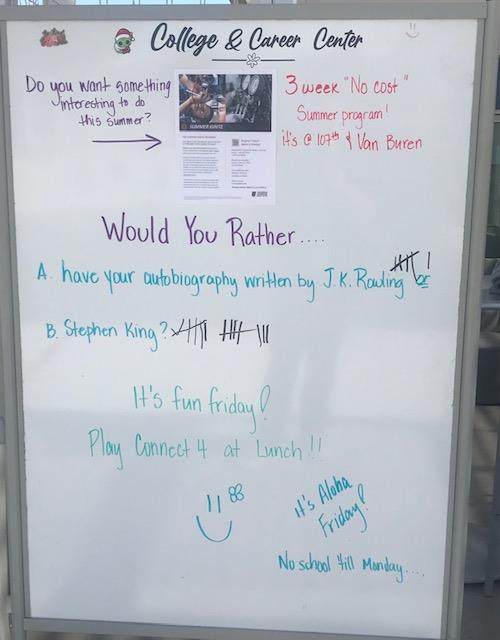 College & Career Center
Do you want something
interesting to do
this summer?
SUMMER IGNITE
3 week "No cost"
Summer program!
it's @ 107th & Van Buren
Would You Rather....
A. have your autobiography written by J.K. Rowling or
B. Stephen King?
It's fun friday!
Play Connect 4 at Lunch!!
It's Aloha
Friday!
No school 'till Monday....